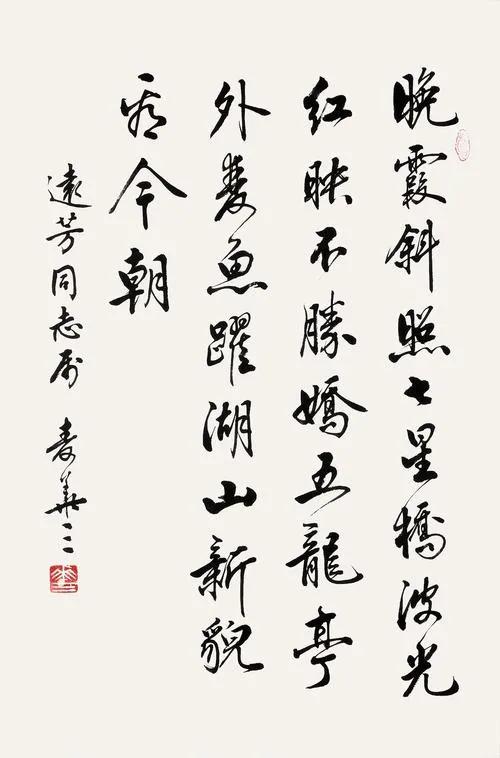 晚霞斜照七星橋波光
红映不勝嬌五龍亭
外雙魚躍湖山新貌
看今朝
遠芳同志属 麦華三